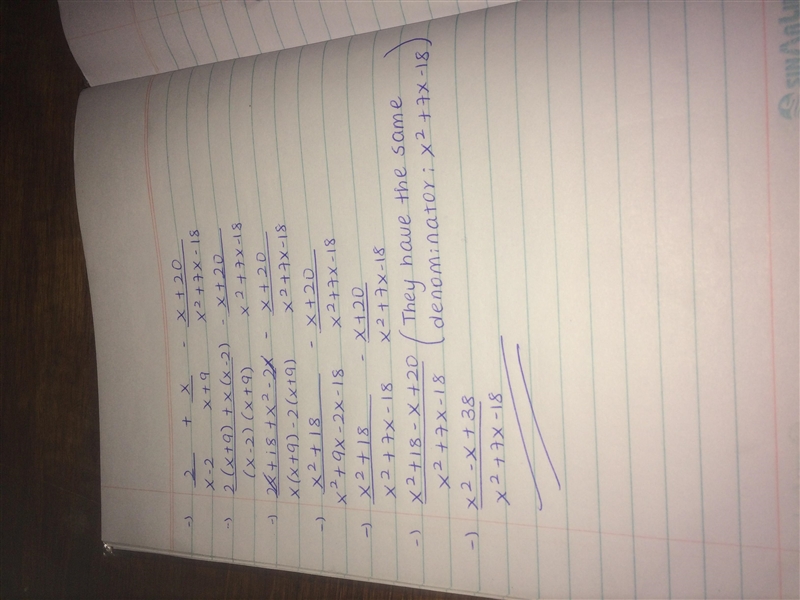 -) 2/x-2 + x/x+9 - x+20/x²+7x-18
-) 2(x+9)+x(x-2)/(x-2)(x+9) - x+20/x²+7x-18
-) 2x+18+x²-2x/x(x+9)-2(x+9) - x+20/x²+7x-18
-) x²+18/x²+9x-2x-18 - x+20/x²+7x-18
-) x²+18/x²+7x-18 - x+20/x²+7x-18
-) x²+18-x+20/x²+7x-18 (They have the same
denominator: x²+7x-18)
-) x²-x+38/x²+7x-18